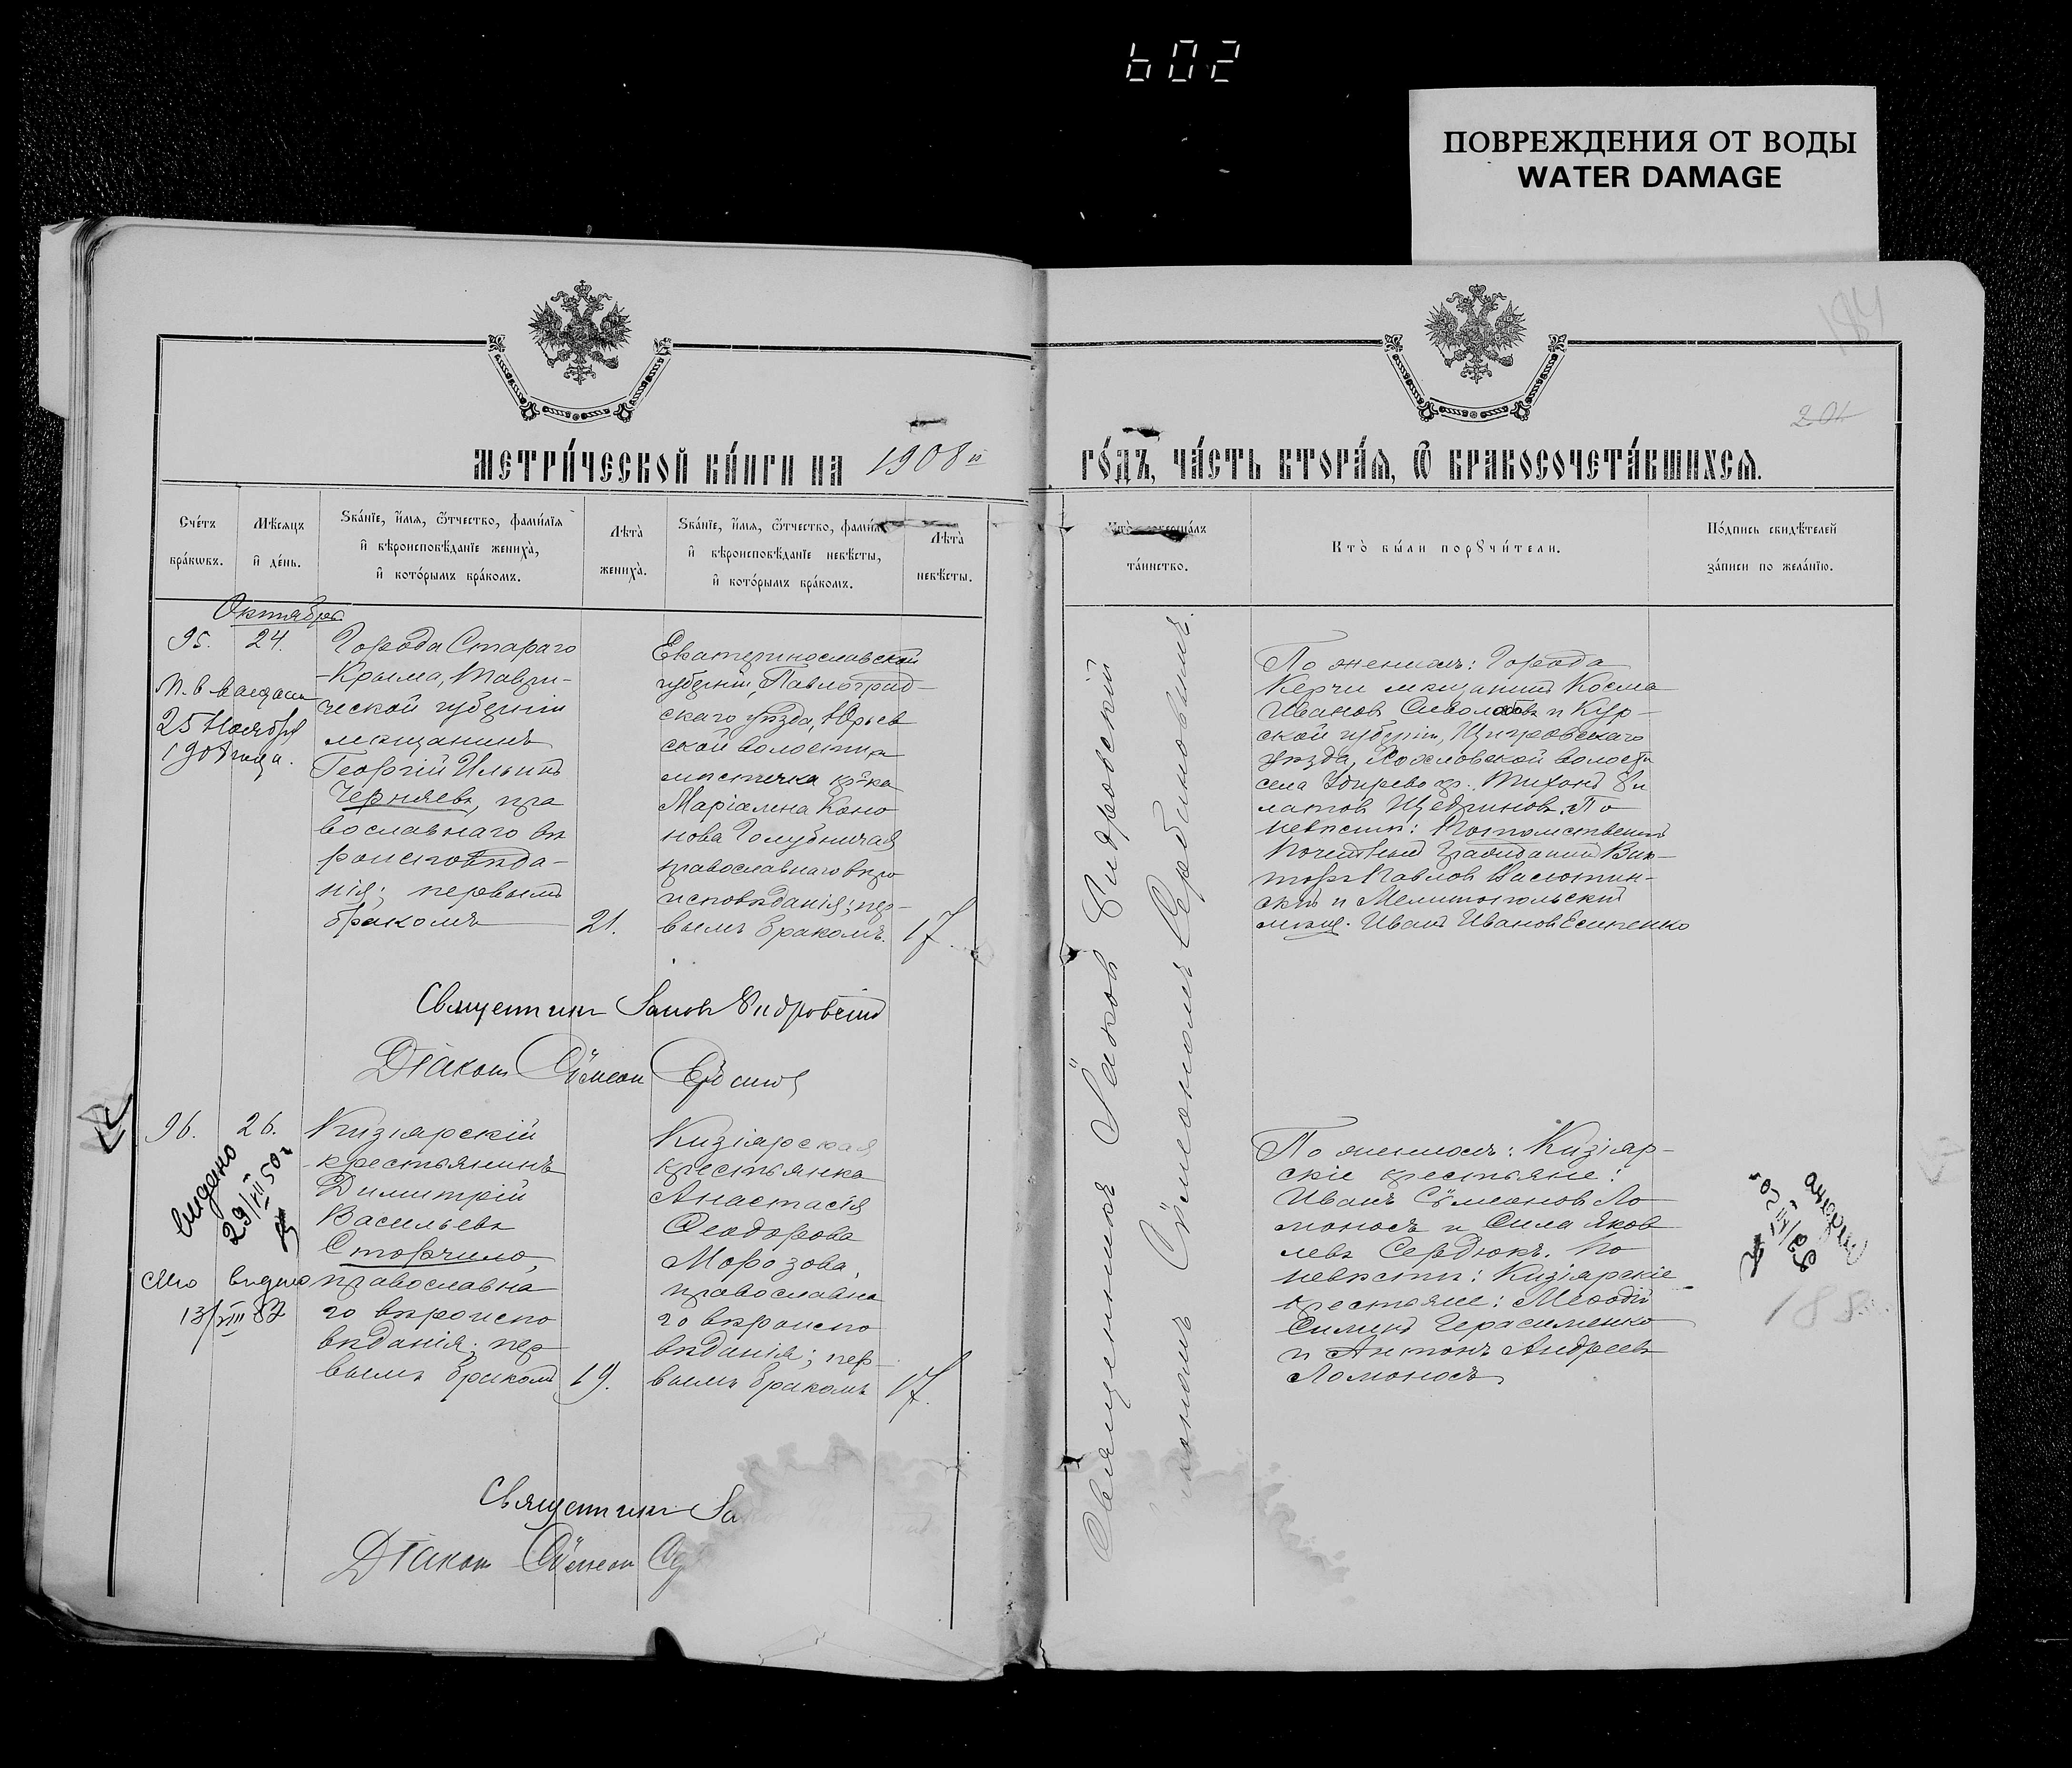 602
ПОВРЕЖДЕНИЯ ОТ ВОДЫ
WATER DAMAGE
184
201
МЕТРИ́ЧЕСКОЙ КНИ́ГИ НА 1908 й
ГО́ДЪ, ЧА́СТЬ ВТОРА́Ѧ, Ѿ БРАКОСОЧЕТА́ВШИХСѦ.
Сче́тъ
бра́кѡвъ.
Мѣ́сѧцъ
и҆ де́нь.
Ѕва́нїе, и҆́мѧ, ѻ҆́тчество, фами́лїѧ
и҆ вѣроисповѣ́данїе жениха̀,
и҆ кото́рымъ бра́комъ.
Лѣта̀
жениха̀.
Ѕва́нїе, и҆́мѧ, ѻ҆́тчество, фами́л
и҆ вѣроисповѣ́данїе невѣ́сты,
и҆ кото́рымъ бра́комъ.
Лѣта̀
невѣ́сты.
Кто̀ соверша́лъ
та́инство.
Кто̀ бы́ли порꙋчи́тели.
По́дпись свидѣ́телей
за́писи по жела́нїю.
Октябрь
95.
24.
25 Ноября
1908 года.
Города Стараго
Крыма, Таври-
ческой губерніи
мѣщанинъ
Георгій Ильинъ
Черняевъ, пра
вославнаго вѣ
роисповѣда-
нія; первымъ
бракомъ
21.
Екатеринославской
губерніи, Павлоград-
скаго уѣзда, Юрьев
ской волости
мѣстечка кр-ка
Маріамна Коно
нова Голубничая
православнаго вѣро
исповѣданія; пер-
вымъ бракомъ.
17.
Священникъ Іаковъ
Діаконъ Сѵмеон
Священникъ Іаковъ
Сѵмеономъ Сербиновымъ.
По женихѣ: Города
Керчи мѣщанинъ Косма
Ивановъ и Кур-
ской губерніи, Щигровскаго
уѣзда, волости
села кр. Тихонъ Фи
латовъ Щедриновъ. По
невѣстѣ: Потомственный
Почетный Гражданинъ Вик-
торъ Павловъ
скій и Мелитопольскій
мѣщ. Иванъ Ивановъ Есипенко
96.
26.
видено
29/VII 50 г
видено
13/VIII 87
Кизіярскій
крестьянинъ
Димитрій
Васильевъ
Сторчило,
православна
го вѣроиспо
вѣданія; пер
вымъ бракомъ
19.
Кизіярская
крестьянка
Анастасія
Ѳеодорова
Морозова,
православна
го вѣроиспо
вѣданія; пер-
вымъ бракомъ
17.
По женихѣ: Кизіяр-
скіе крестьяне:
Иванъ Сѵмеоновъ Ло
моносъ и Сила Яков
левъ Сердюкъ. По
невѣстѣ: Кизіярскіе
крестьяне: Меѳодій
Силинъ Герасименко
и Антонъ Андреевъ
Ломоносъ
188
Священникъ
Діаконъ Сѵмеон